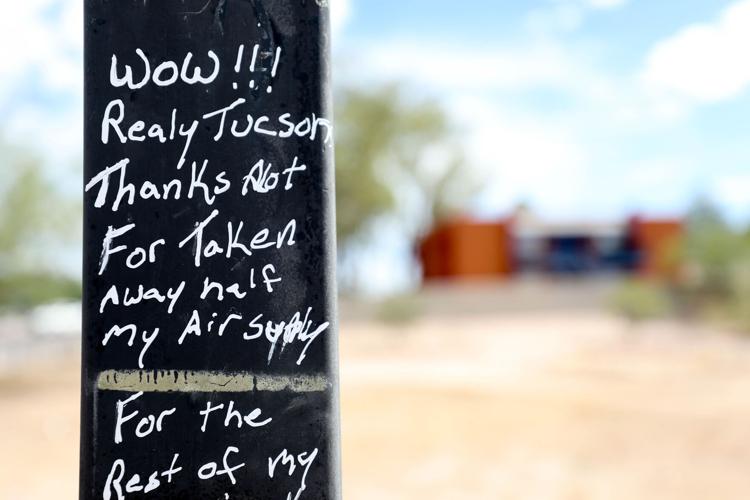 WOW!!!
Realy Tucson
Thanks Not
For Taken
Away half
my Air supply
For the
Rest of my